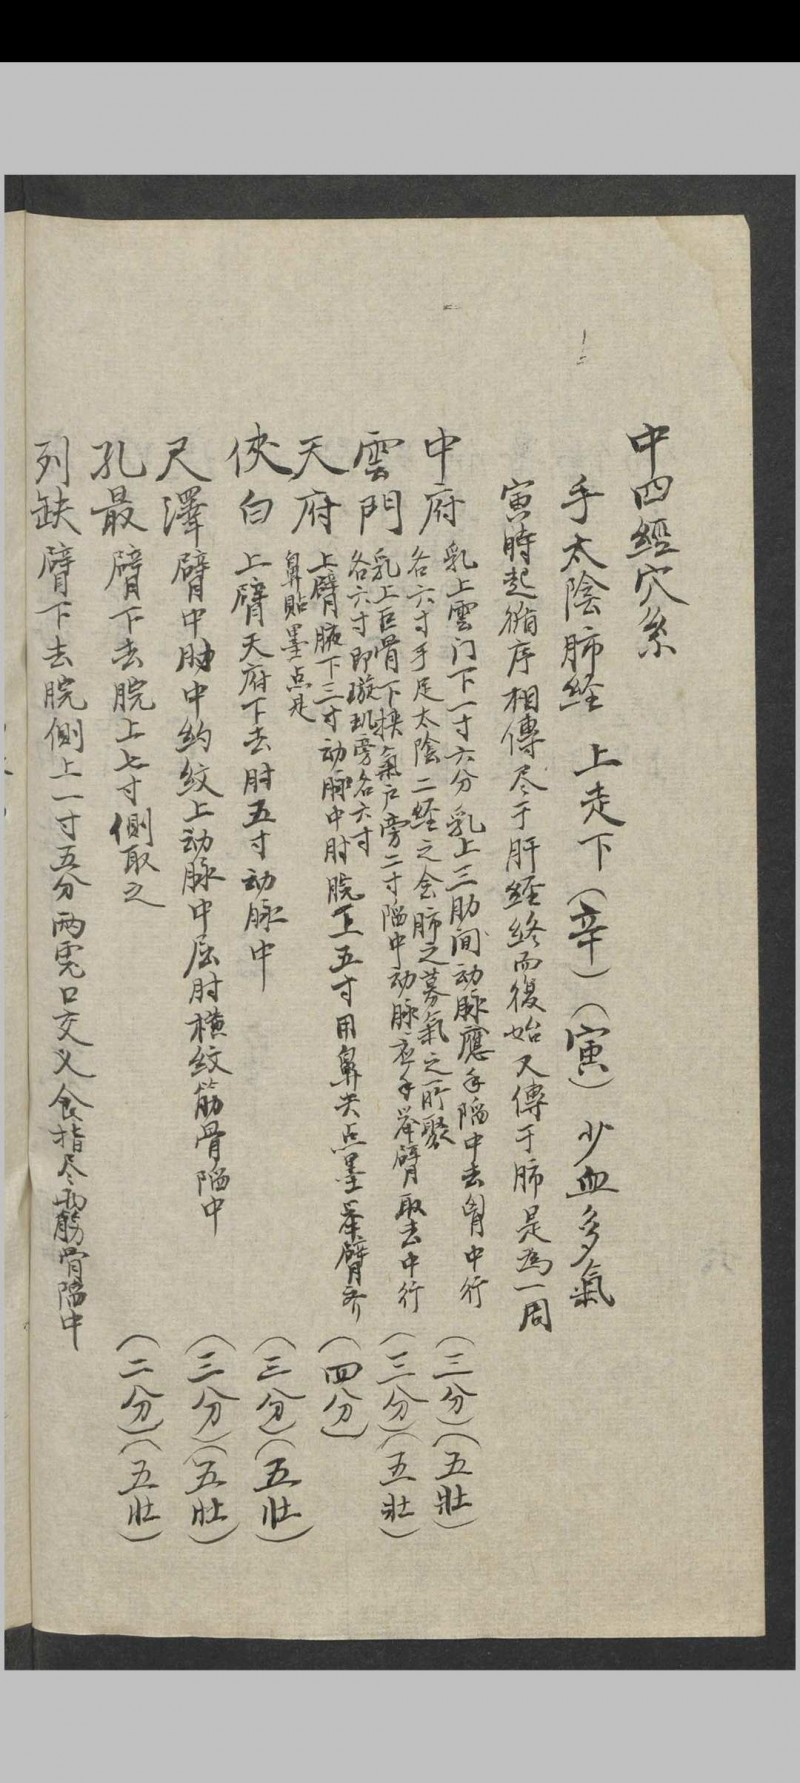 中四經穴系
手太陰肺経　上走下（辛）（寅）少血多氣
寅時起循序相傳尽于肝經終而復始又傳于肺是為一周
中府　乳上雲门下一寸六分乳上三肋间动脉應手陷中去胷中行
各六寸手足太陰二経之会肺之募氣之所聚（三分）（五壯）
雲門　乳上巨骨下挾氣户旁二寸陷中动脉应手举臂取去中行
各六寸即璇玑旁各六寸（三分）（五壯）
天府　上臂腋下三寸动脉中肘腕上五寸用鼻尖点墨举臂齐
鼻貼墨点是（四分）
俠白　上臂天府下去肘五寸动脉中（三分）（五壯）
尺澤　臂中肘中約紋上动脉中屈肘横紋筋骨陷中（三分）（五壯）
孔最　臂下去腕上七寸側取之（二分）（五壯）
列缺　臂下去腕側上一寸五分两虎口交义食指尽處筋骨陷中